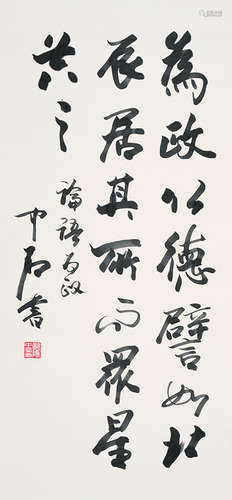 為政以德譬如北
辰居其所而眾星
共之
論語為政
中石書